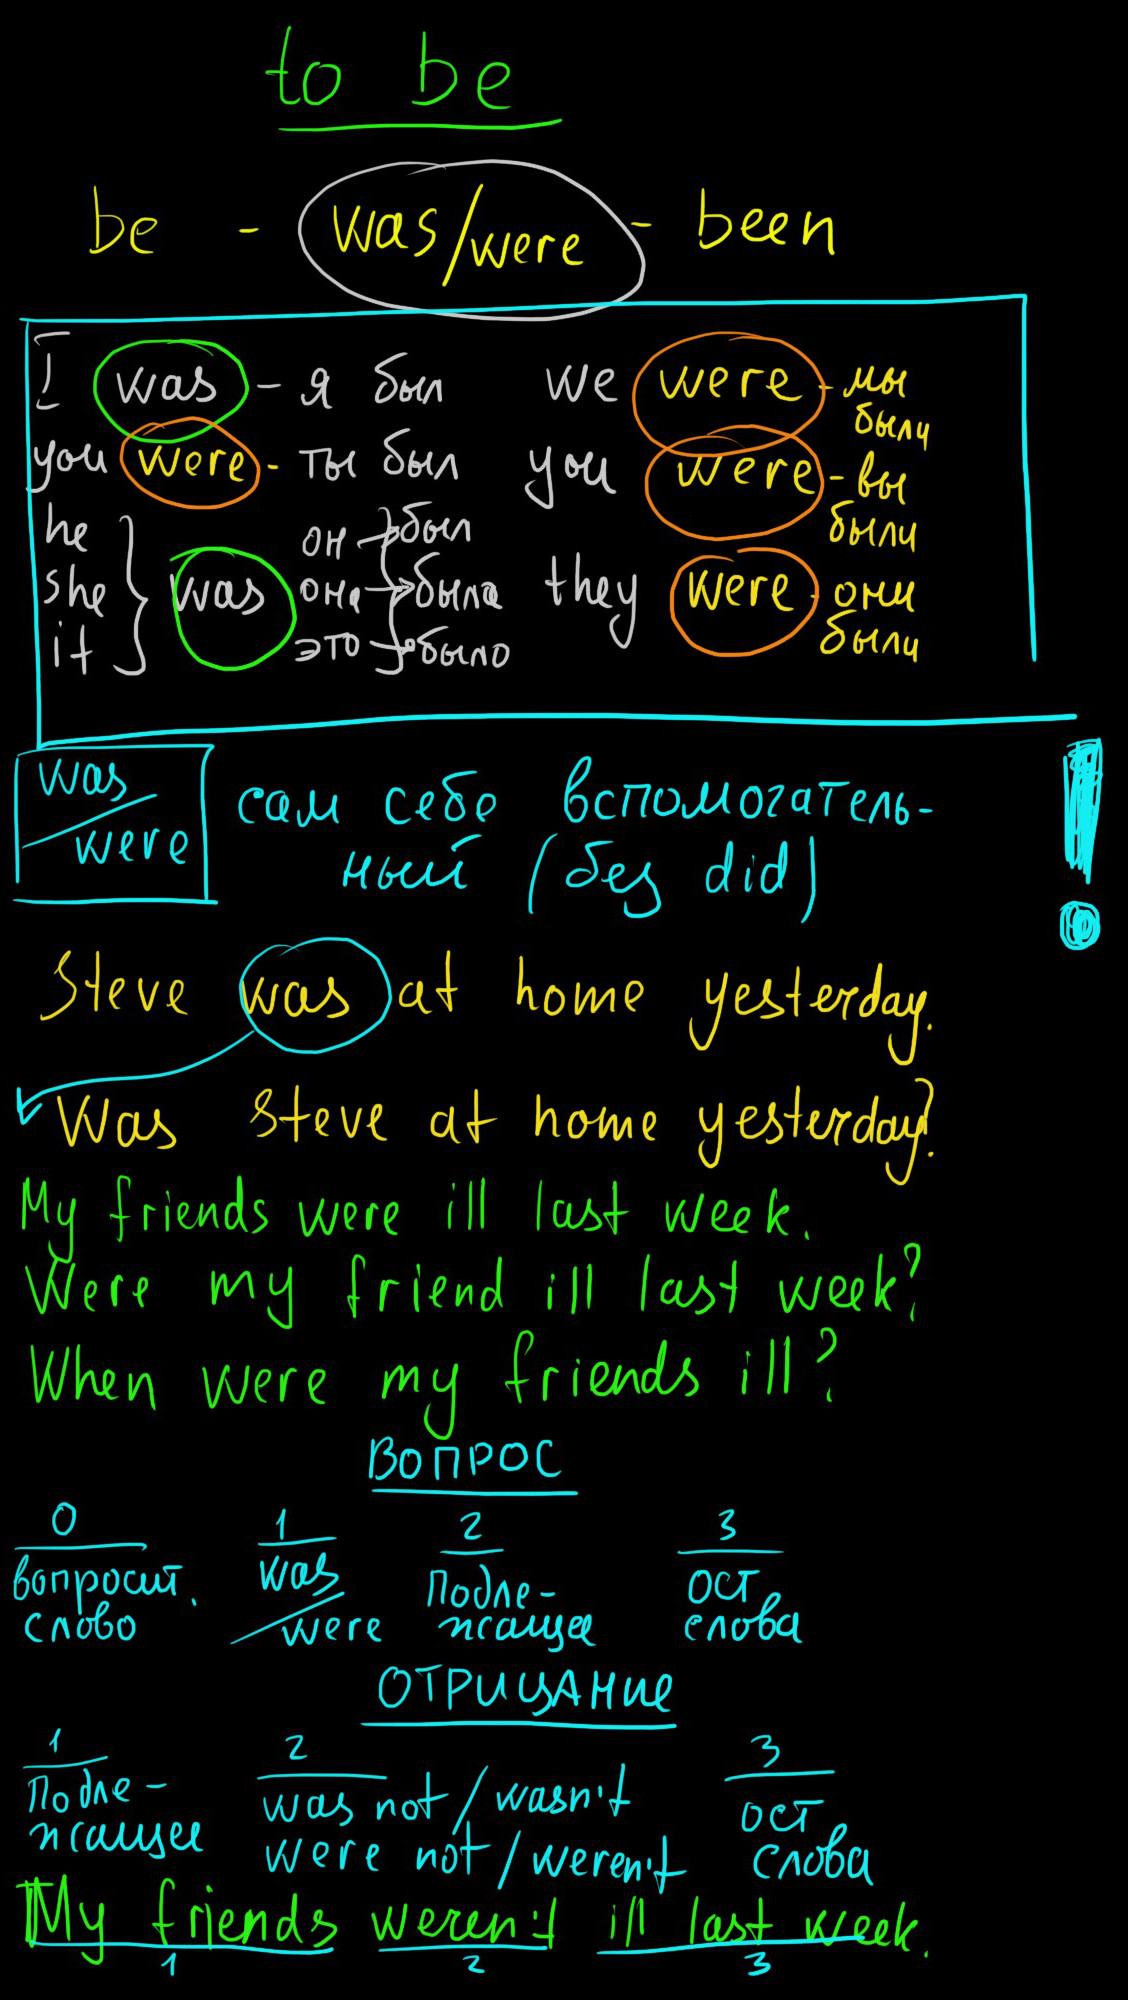 to be
be - was/were - been
I was - я был
you were - ты был
he
she
it
was
он был
она была
это было
we were - мы
были
you were - вы
были
they were - они
были
was
were
сам себе вспомогатель-
ный (без did)
!
Steve was at home yesterday.
Was Steve at home yesterday?
My friends were ill last week.
Were my friend ill last week?
When were my friends ill?
ВОПРОС
0 1 2 3
вопросит. слово
was/were
подле-
жащее
ост
слова
ОТРИЦАНИЕ
1 2 3
подле-
жащее
was not / wasn't
were not / weren't
ост
слова
My friends weren't ill last week.
1 2 3